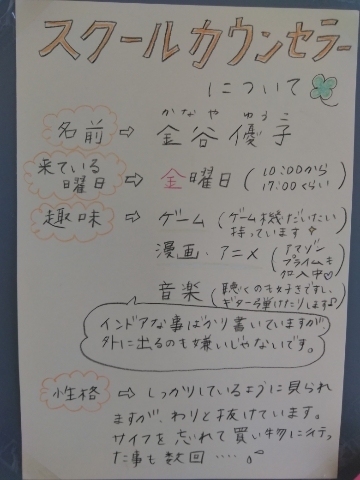 スクールカウンセラー
について
かなや ゆうこ
名前 ⇨ 金谷 優子
来ている曜日 ⇨ 金曜日 (10:00から 17:00くらい)
趣味 ⇨ ゲーム (ゲーム機だいたい持っています♪)
漫画・アニメ (アマゾンプライムも加入中♡)
音楽 (聴くのも好きですし、ギター弾けたりします♪)
インドアな事ばかり書いていますが、
外に出るのも嫌いじゃないです。
性格 ⇨ しっかりしているように見られ
ますが、わりと抜けています。
サイフを忘れて買い物に行っ
た事も数回….。